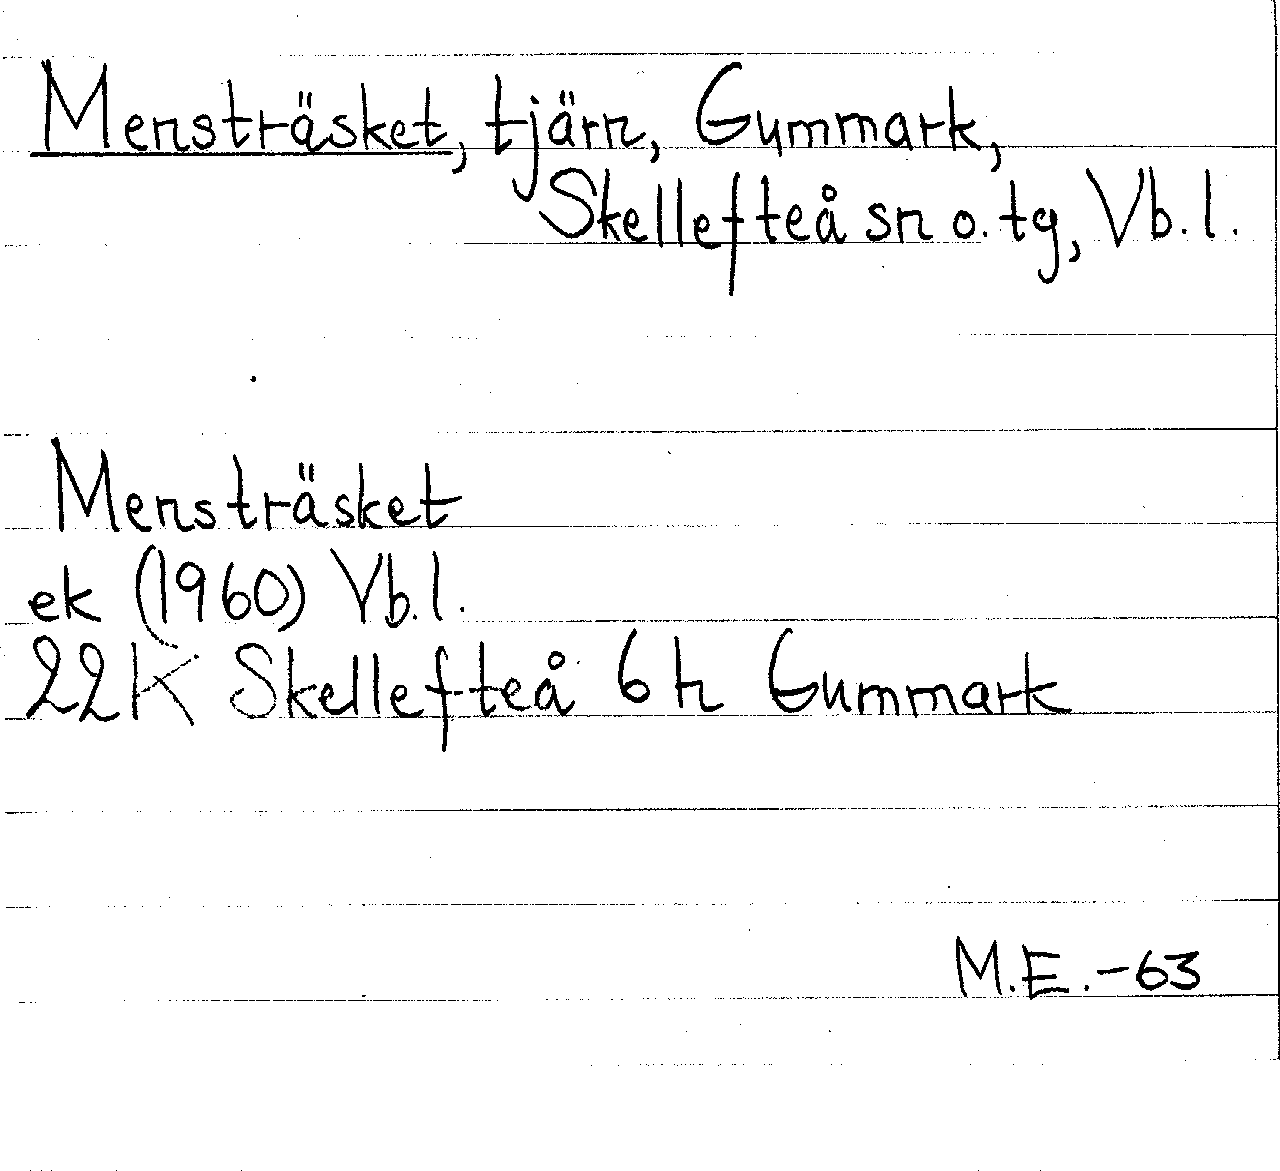 Mensträsket, tjärn, Gummark,
Skellefteå sn o. tg, Vb. l.
Mensträsket
ek (1960) Vb. l.
22K Skellefteå 6 h Gummark
M.E. -63